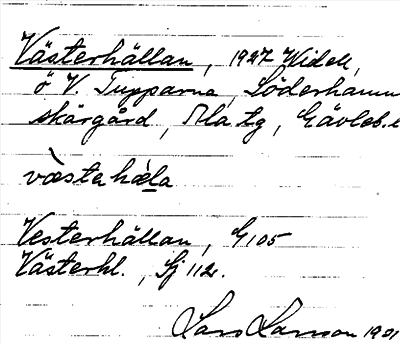 Västerhällan, 1927 Widell,
ö V. Tupparna, Söderhamns
skärgård, Lg, Gävleb.l
væstehæla
Vesterhällan, G105
Västerhl., Sj 112.
Lars Larsson 1921